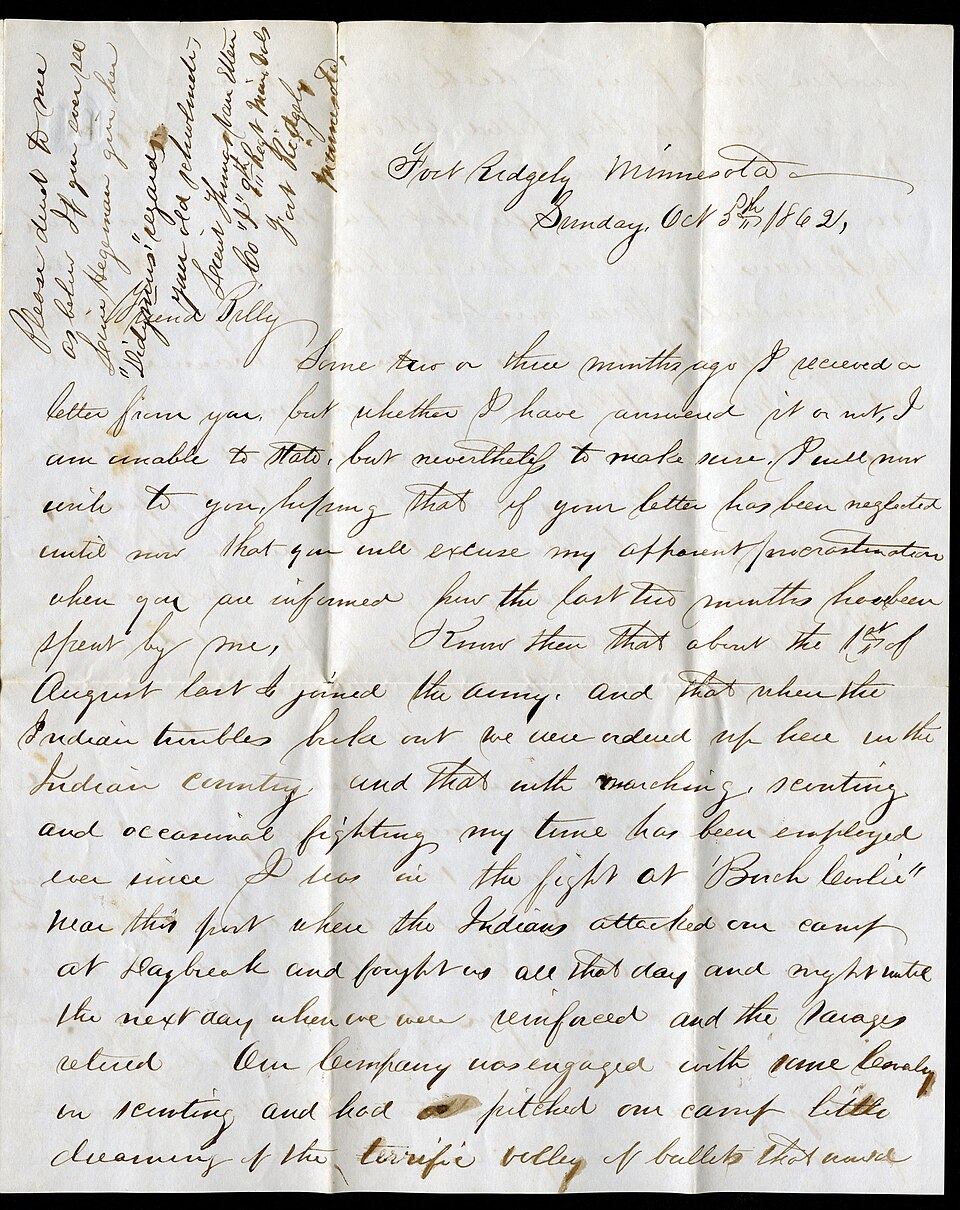 Please direct to me
as below If you ever see
Louise Hegeman give her
"Didymus'" regards,
your old schoolmate,
Lieut James Van Etten
Co "I" 9th Regt Minn Vols
Fort Ridgely
Minnesota
Fort Ridgely Minnesota
Sunday, Oct 5th 1862,
Friend Billy
Some two or three months ago I recieved a
letter from you, but whether I have answered it or not, I
am unable to state, but nevertheless to make sure, I will now
write to you, hoping that if your letter has been neglected
until now that you will excuse my apparent procrastination
when you are informed how the last two months has been
spent by me, Know then that about the 1st of
August last I joined the army, and that when the
Indian troubles broke out we were ordered up here in the
Indian country, and that with marching, scouting
and occasional fighting my time has been employed
ever since I was in the fight at "Birch Coolie"
near this post where the Indians attacked our camp
at Daybreak and fought us all that day and night until
the next day when we were reinforced and the savages
retired Our Company was engaged with some Cavalry
in scouting and had pitched our camp little
dreaming of the terrific volley of bullets that would